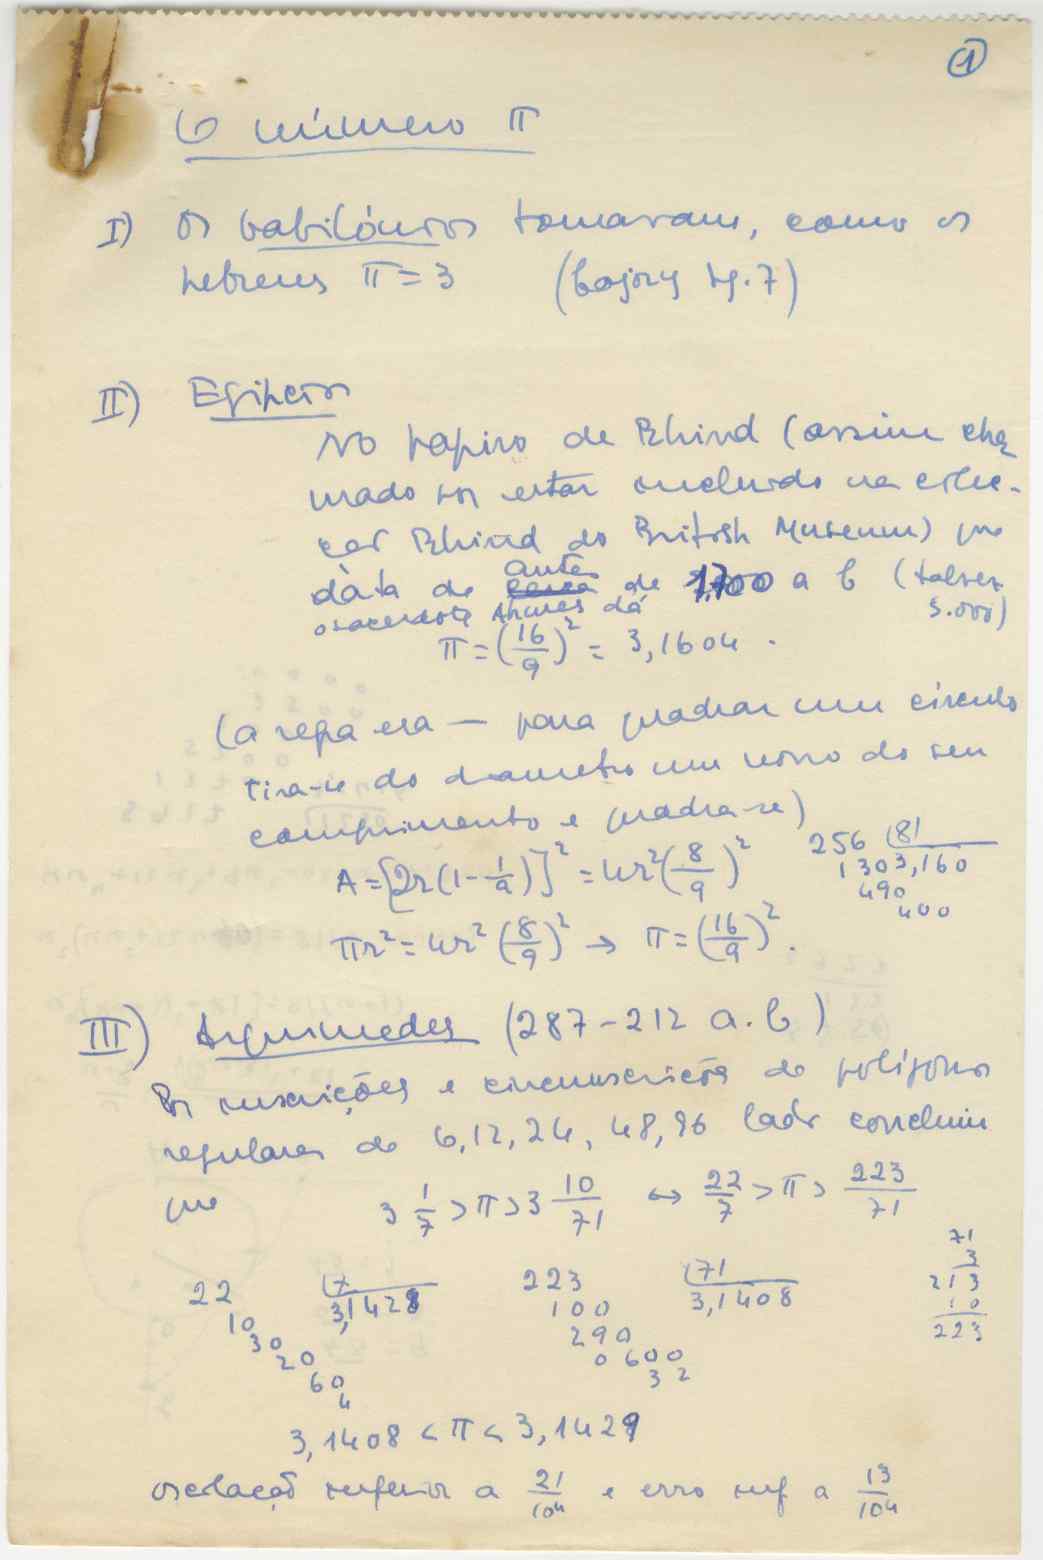 1
O número π
I) Os babilónios tomavam, como os
hebreus π = 3 (Cajory pg. 7)
II) Egípcios
No papiro de Rhind (assim cha
mado por estar incluido na colec-
ção Rhind do British Museum) que
data de antes de 1700 a C (talvez
o sacerdote Ahmes dá 3.000)
π = (16/9)² = 3,1604.
(a regra era — para quadrar um circulo
tira-se do diametro um nono do seu
comprimento e quadra-se)
A = [2r(1-1/9)]² = 4r²(8/9)²
256 81
1303,160
490
400
πr² = 4r²(8/9)² → π = (16/9)².
III) Arquimedes (287-212 a.C)
Por inscrições e circunscrições de polígonos
regulares de 6,12,24,48,96 lados concluiu
que 3 1/7 > π > 3 10/71 ↔ 22/7 > π > 223/71
22 7
3,1428
10
30
20
60
4
223 71
100 3,1408
290
0600
32
71
3
213
10
223
3,1408 < π < 3,1429
oscilação inferior a 21/10⁴ e erro inf a 13/10⁴